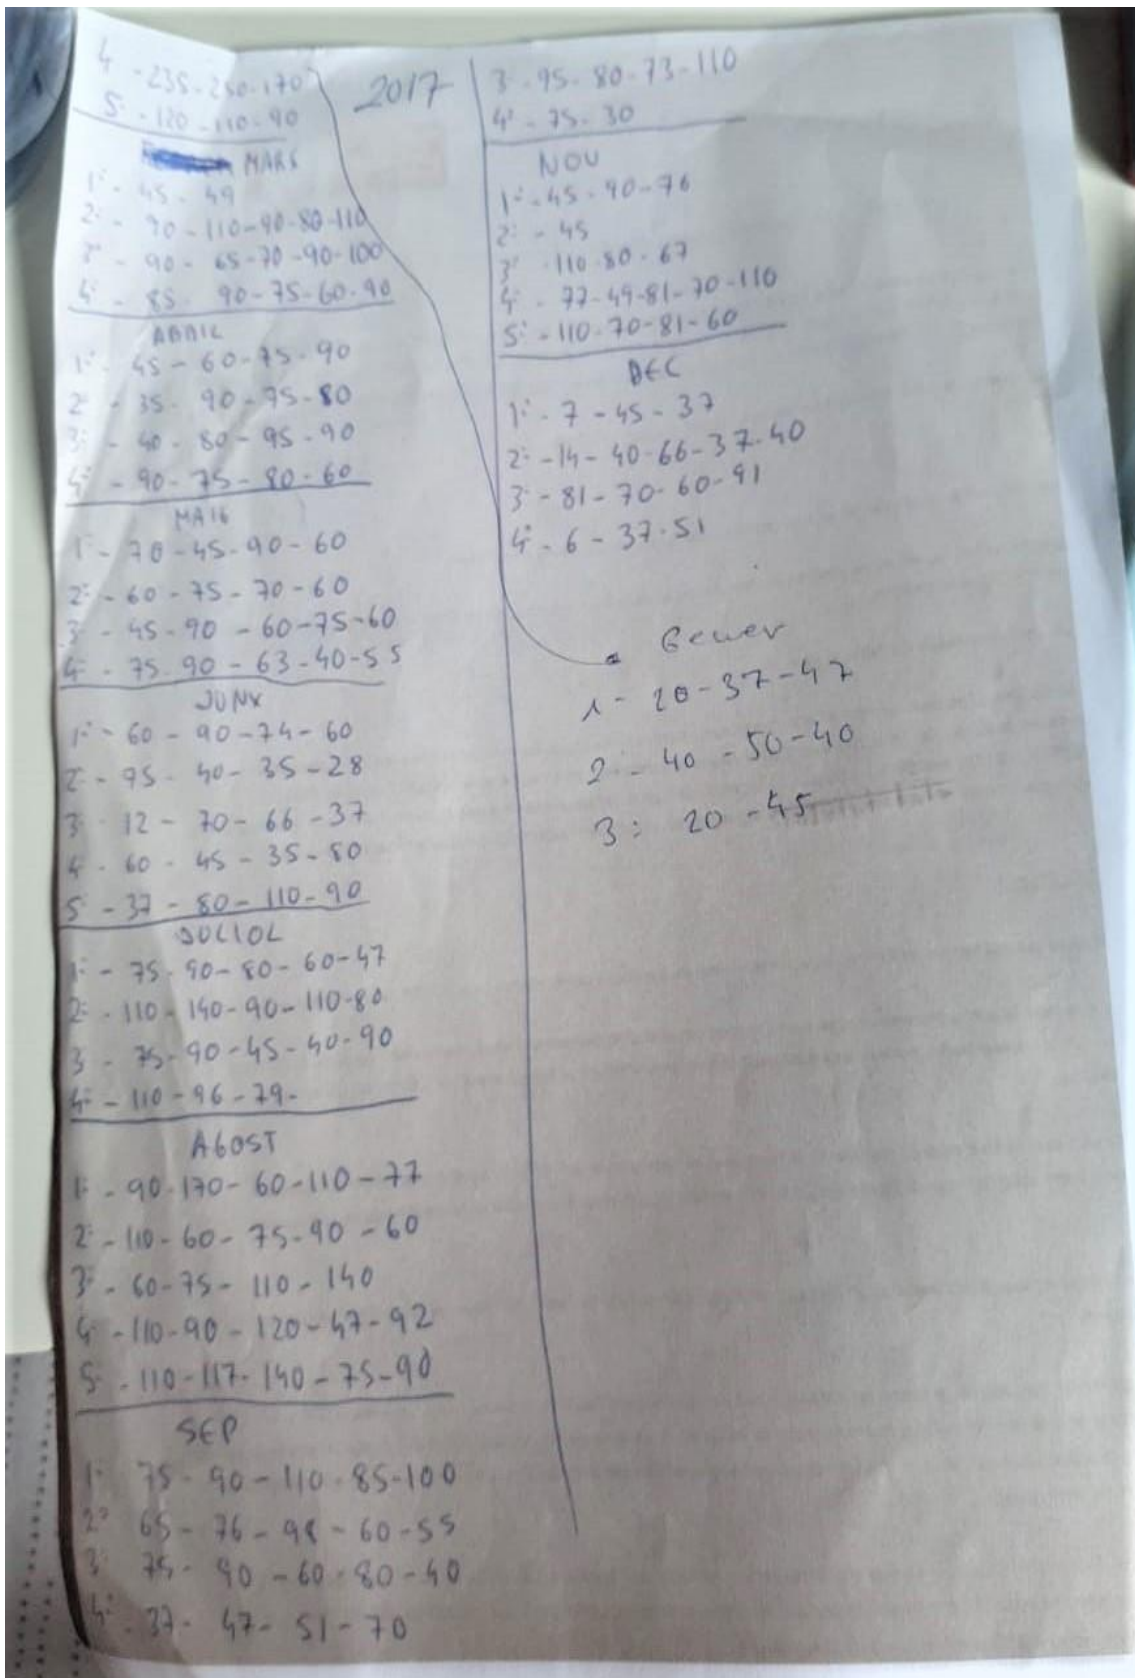 4 - 235 - 250 - 170
5 - 120 - 110 - 90
MARS
1: - 45 - 49
2: - 90 - 110 - 90 - 80 - 110
3: - 90 - 65 - 70 - 90 - 100
4: - 85 - 90 - 75 - 60 - 90
ABRIL
1: - 45 - 60 - 75 - 90
2: - 35 - 90 - 75 - 80
3: - 40 - 80 - 95 - 90
4: - 90 - 75 - 80 - 60
MAIG
1: - 70 - 45 - 90 - 60
2: - 60 - 75 - 70 - 60
3: - 45 - 90 - 60 - 75 - 60
4: - 75 - 90 - 63 - 40 - 55
JUNY
1: - 60 - 90 - 74 - 60
2: - 95 - 40 - 35 - 28
3: 12 - 70 - 66 - 37
4 - 60 - 45 - 35 - 80
5 - 37 - 80 - 110 - 90
JULIOL
1: - 75 - 90 - 80 - 60 - 47
2: - 110 - 140 - 90 - 110 - 80
3 - 75 - 90 - 45 - 40 - 90
4: - 110 - 96 - 79 -
AGOST
1: - 90 - 170 - 60 - 110 - 77
2: - 110 - 60 - 75 - 90 - 60
3: - 60 - 75 - 110 - 140
4: - 110 - 90 - 120 - 47 - 92
5: - 110 - 117 - 140 - 75 - 90
SEP
1: 75 - 90 - 110 - 85 - 100
2: 65 - 76 - 98 - 60 - 55
3: 75 - 90 - 60 - 80 - 40
4: - 37 - 47 - 51 - 70
2017
3: - 95 - 80 - 73 - 110
4: - 75 - 30
NOV
1: - 45 - 90 - 76
2: - 45
3: - 110 - 80 - 67
4: - 77 - 49 - 81 - 70 - 110
5: - 110 - 70 - 81 - 60
DEC
1: - 7 - 45 - 37
2: - 14 - 40 - 66 - 37 - 40
3: - 81 - 70 - 60 - 91
4: - 6 - 37 - 51
Gener
1 - 20 - 37 - 47
2: - 40 - 50 - 40
3: 20 - 45